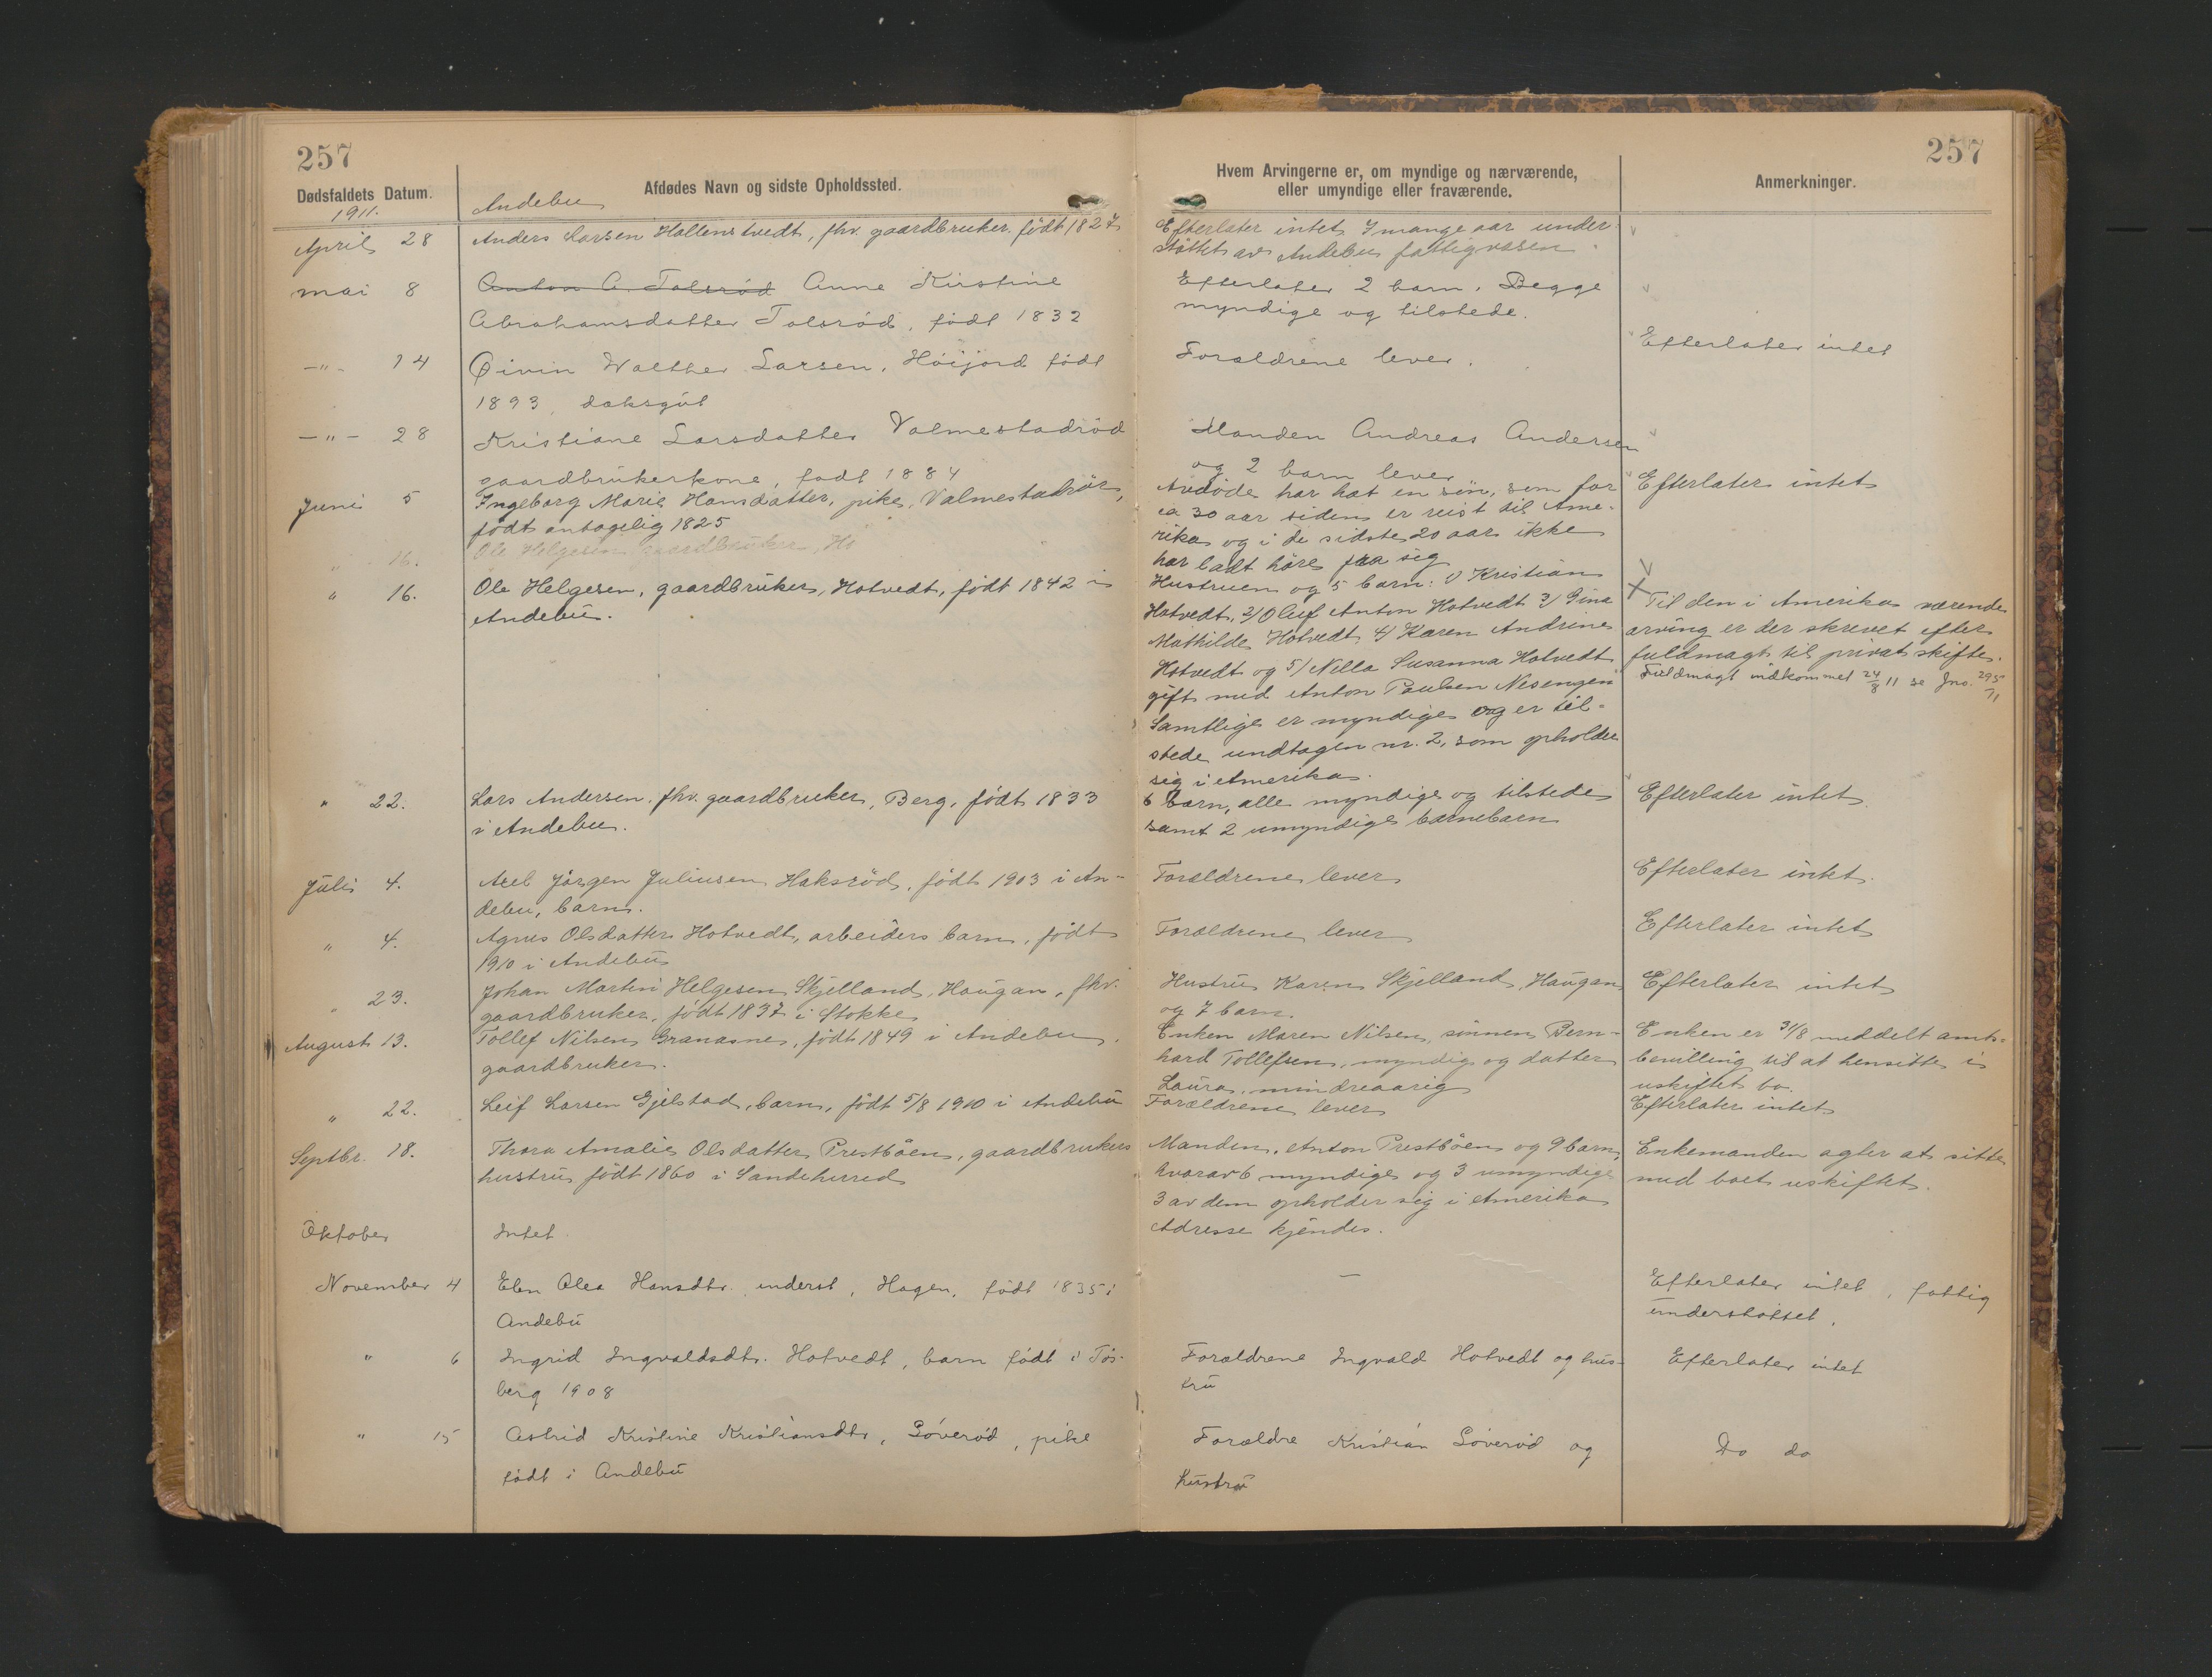 257
Dødsfaldets Datum.
Afdødes Navn og sidste Opholdssted.
1911.
Andebu
April 28 Anders Larsen Hallenstvedt, fhv. gaardbruker. født 1827
mai 8 Anton A. Tolsrød Anne Kirstine
Abrahamsdatter Tolsrød, født 1832
-"- 14 Øivin Walther Larsen, Höijord født
1893,
-"- 28 Kristiane Larsdatter Valmestadrød
gaardbrukerkone, født 1884
Juni 5 Ingeborg Marie Hansdatter, pike, Valmestadrör,
født antagelig 1825
" 16. Ole Helgesen gaardbruker, Ho
" 16. Ole Helgesen, gaardbruker, Hotvedt, født 1842 i
Andebu.
" 22. Lars Andersen, fhv. gaardbruker, Berg, født 1833
i Andebu.
Juli 4. Axel Jörgen Juliusen Haksröd, født 1903 i An-
debu, barn.
" 4. Agnes Olsdatter Hotvedt, arbeiders barn, født
1910 i Andebu
" 23. Johan Martin Helgesen Skjelland, Haugan, fhv.
gaardbruker, født 1837 i Stokke
August 13. Tollef Nilsen Granasne, født 1849 i Andebu,
gaardbruker.
" 22. Leif Larsen Gjelstad, barn, født 5/8 1910 i Andebu
Septbr. 18. Thora Amalie Olsdatter Prestböen, gaardbrukers
hustru født 1860 i Sandeherred
Oktober Intet.
November 4 Elen Olea Hansdtr. inderst, Hagen, født 1835 i
Andebu
" 6 Ingrid Ingvaldsdtr. Hotvedt, barn født i Töns-
berg 1908
" 15 Astrid Kristine Kristiansdtr, Söveröd, pike
født i Andebu
257
Hvem Arvingerne er, om myndige og nærværende,
eller umyndige eller fraværende.
Anmerkninger.
Efterlater intet I mange aar under-
støttet av Andebu fattigvæsen.
Efterlater 2 barn. Begge
myndige og tilstede.
Forældrene lever.
Efterlater intet
Manden Andreas Andersen
og 2 barn lever
Avdöde har hat en sön, som for
ca 30 aar siden er reist til Ame-
rika og i de sidste 20 aar ikke
har ladt höre fra sig
Efterlater intet
Hustruen og 5 barn: 1) Kristian
Hotvedt, 2/ Oluf Anton Hotvedt 3/ Gina
Mathilde Hotvedt 4/ Karen Andrine
Hotvedt og 5/ Nilla Susanna Hotvedt
gift med Anton Paulsen Nesengen
Samtlige er myndige og er til-
stede undtagen nr. 2, som opholder
sig i Amerika.
Til den i Amerika værende
arving er der skrevet efter
fuldmagt til privat skifte.
Fuldmagt indkommet 24/8 11 se Jno. 295/11
6 barn, alle myndige og tilstede
samt 2 umyndige barnebarn
Efterlater intet.
Forældrene lever
Efterlater intet.
Forældrene lever
Efterlater intet
Hustru Karen Skjelland, Haugan
og 7 barn.
Efterlater intet
Enken Maren Nilsen, sönnen Bern-
hard Tollefsen, myndig og datter
Laura, mindreaarig
Enken er 31/8 meddelt amts-
bevilling til at hensitte i
uskiftet bo.
Forældrene lever
Efterlater intet
Manden, Anton Prestböen og 9 barn,
hvorav 6 myndige og 3 umyndige
3 av dem opholder sig i Amerika
Adresse kjendes.
Enkemanden agter at sitte
med boet uskiftet.
—
Efterlater intet, fattig
understöttet.
Forældrene Ingvald Hotvedt og hus-
tru
Efterlater intet
Forældre Kristian Söveröd og
hustru
Do do